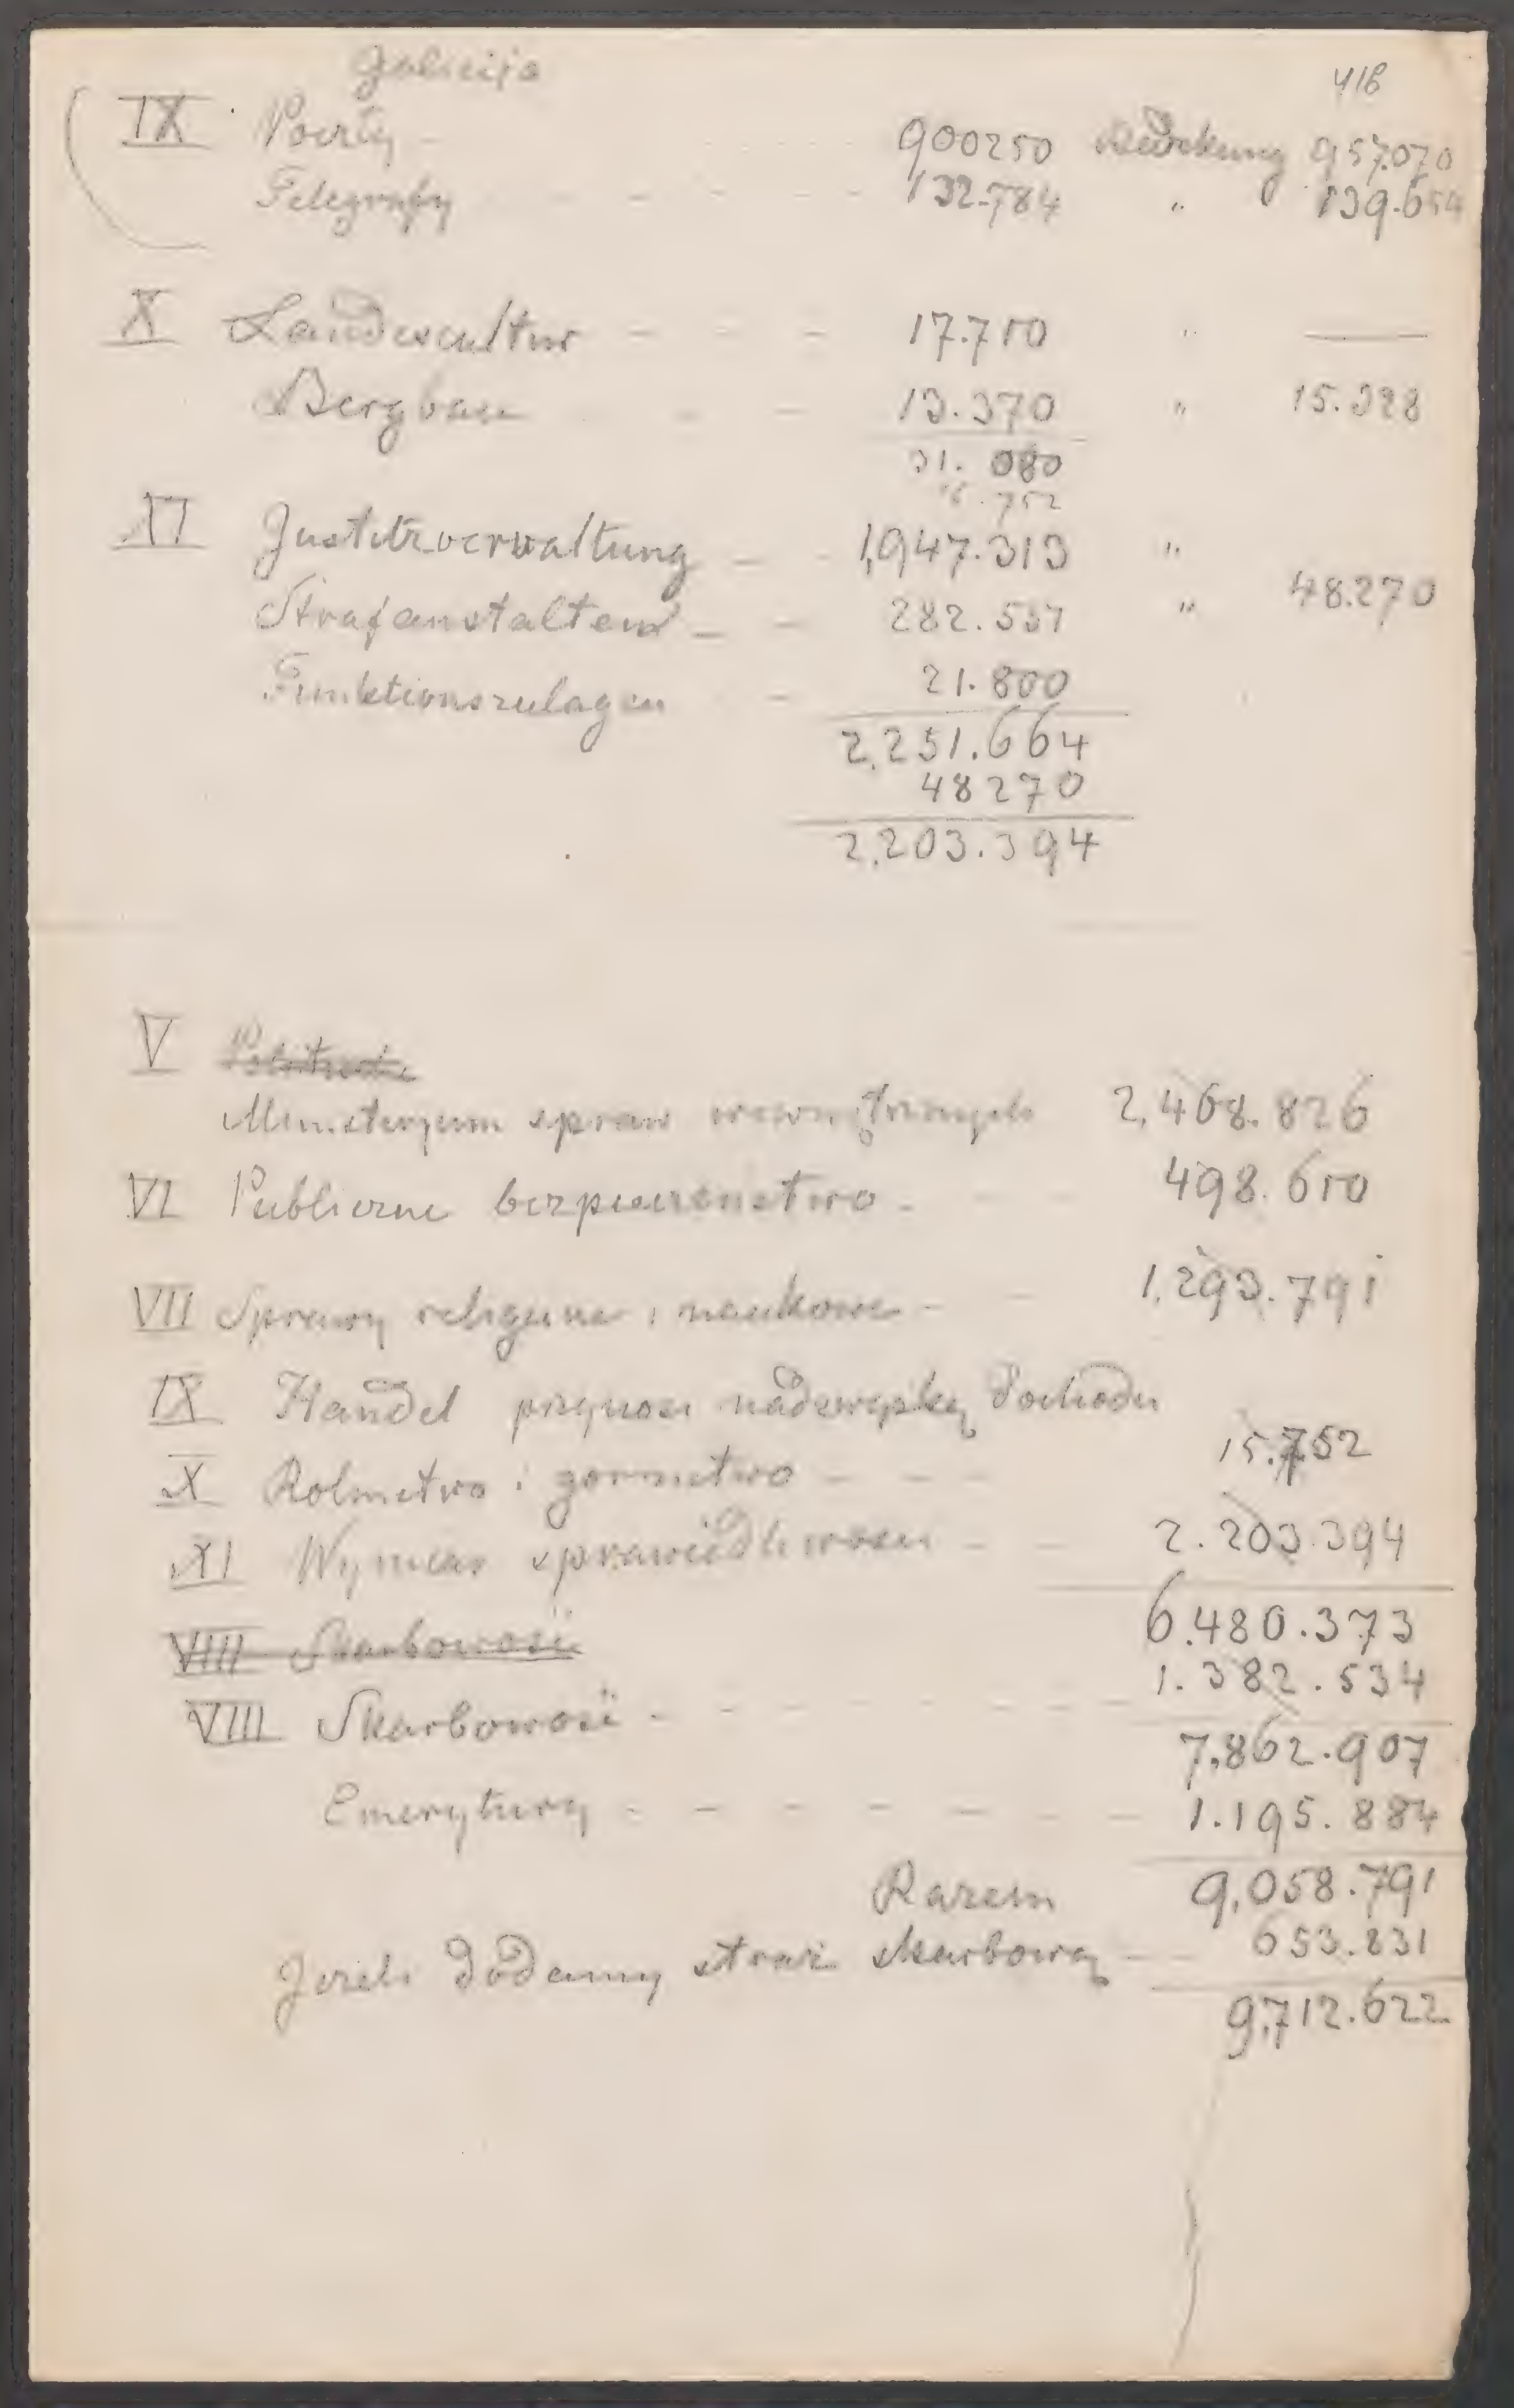 Galicija
418
IX Poczty - 900250 Deckung 957.070
Telegrafy - - - 132.784 " 139.654
X Landescultur - - - 17.710 " —
Bergbau - - 13.370 " 15.328
31.080
15.752
XI Justizverwaltung - - 1,947.313 "
Strafanstalten - - 282.551 " 48.270
Funktionszulagen - 21.800
2,251.664
48270
2,203.394
V
Ministeryum spraw wewnętrznych 2,468.826
VI Publiczne bezpieczenstwo - 498.610
VII Sprawy religijne i naukowe - - 1,293.791
IX Handel przynosi nadzwyżkę dochodu
X Rolnictwo i gornictwo - - - 15.752
XI Wymiar sprawiedliwosci - - 2.203.394
6.480.373
VIII Skarbowość
1.382.534
VIII Skarbowość - - - - - - -
7,862.907
Emerytury - - - - - - - 1.195.884
Razem 9,058.791
Jezeli dodamy straż skarbową - 653.831
9,712.622